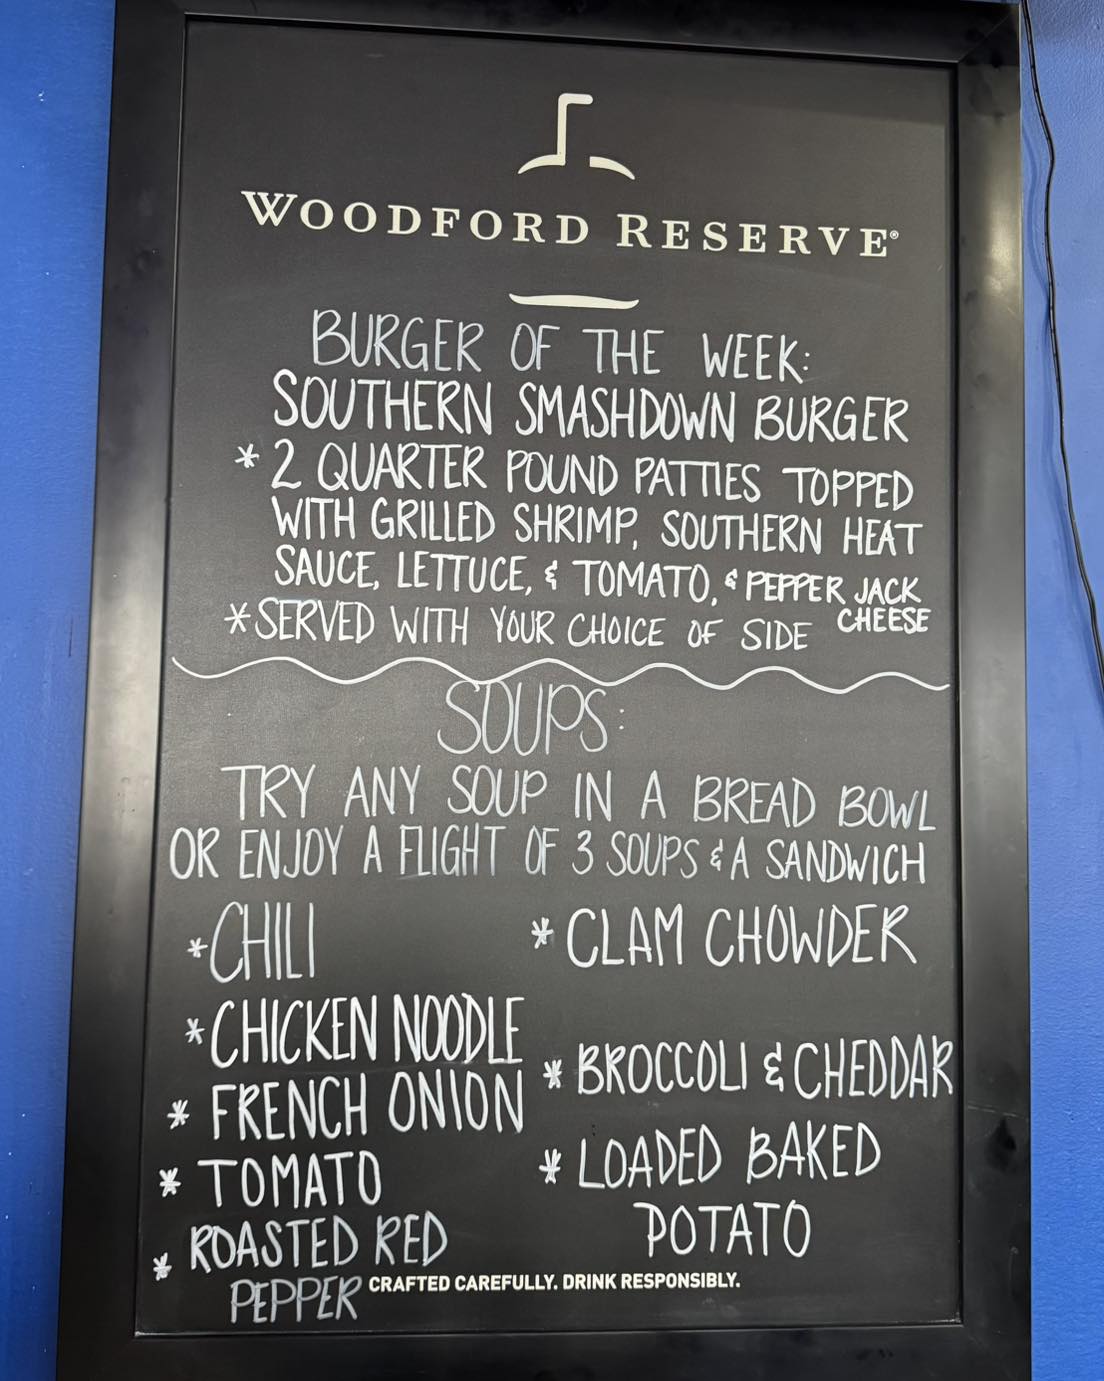 WOODFORD RESERVE®
BURGER OF THE WEEK:
SOUTHERN SMASHDOWN BURGER
* 2 QUARTER POUND PATTIES TOPPED
WITH GRILLED SHRIMP, SOUTHERN HEAT
SAUCE, LETTUCE, & TOMATO, & PEPPER JACK
CHEESE
* SERVED WITH YOUR CHOICE OF SIDE
SOUPS:
TRY ANY SOUP IN A BREAD BOWL
OR ENJOY A FLIGHT OF 3 SOUPS & A SANDWICH
* CHILI
* CHICKEN NOODLE
* FRENCH ONION
* TOMATO
* ROASTED RED
PEPPER
* CLAM CHOWDER
* BROCCOLI & CHEDDAR
* LOADED BAKED
POTATO
CRAFTED CAREFULLY. DRINK RESPONSIBLY.